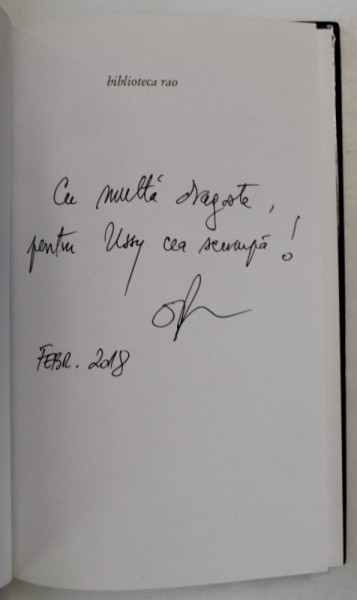 biblioteca rao
Cu multă dragoste,
pentru Ussy cea scumpă!
FEBR. 2018